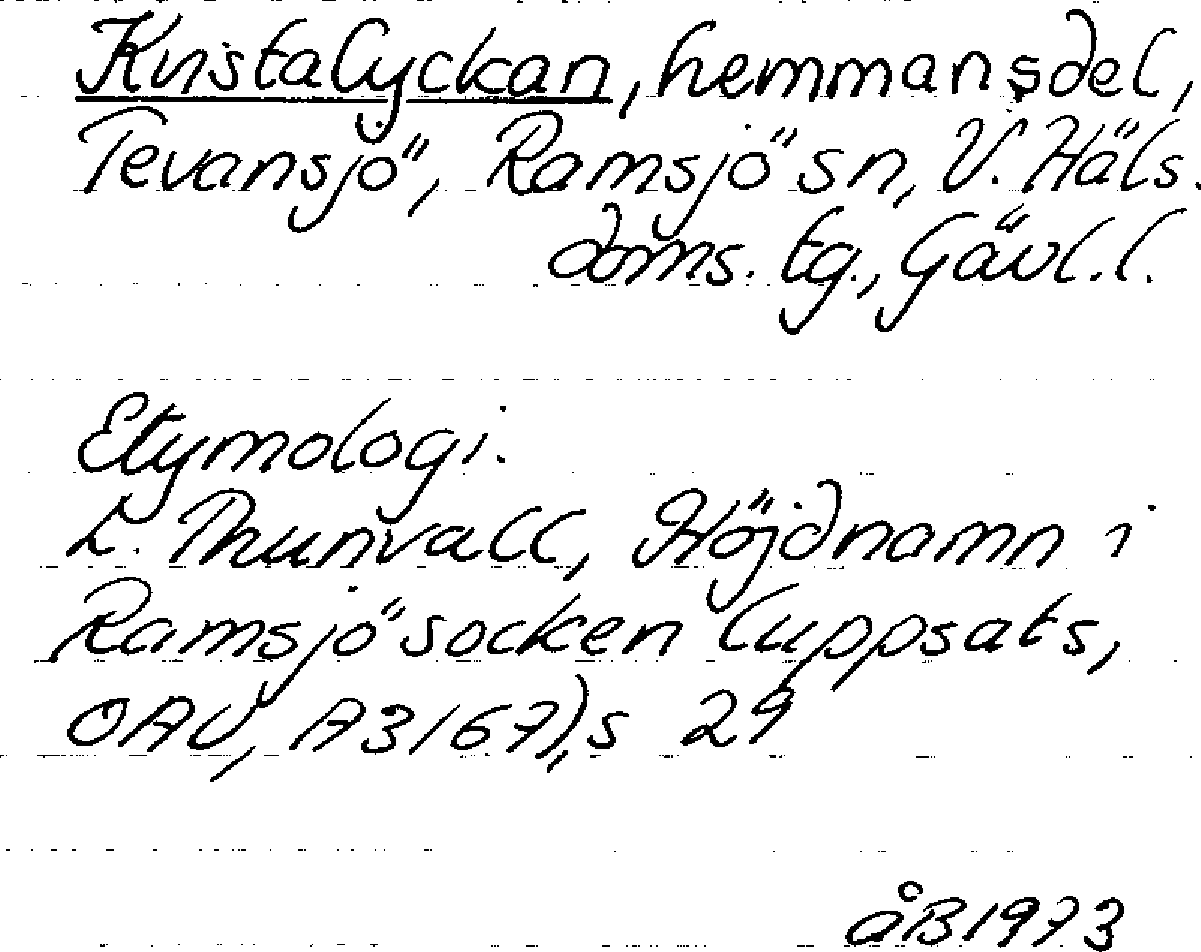 Kristalyckan, hemmansdel,
Tevansjö, Ramsjö sn, V. Häls.
doms. tg., Gävl. l.
Etymologi.
L. Thunvall, Höjdnamn i
Ramsjö socken (uppsats,
OAU, A3167), s 29
åB 1973